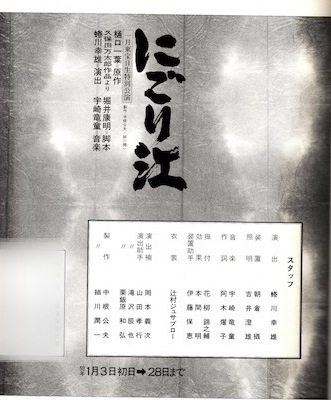 にごり江
一月東宝日生特別公演
樋口一葉・原作
久保田万太郎作品より
堀井康明・脚本
蜷川幸雄・演出
宇崎竜童・音楽
スタッフ
演出 蜷川幸雄
装置 朝倉摂
照明 吉井澄雄
音楽 宇崎竜童
作詞 阿木燿子
振付 花柳錦之輔
効果 本間明
装置助手 伊藤保恵
衣裳 辻村ジュサブロー
演出補 岡本義次
演出助手 山田孝行
〃 滝沢辰也
〃 栗飯原和弘
製作 中根公夫
〃 細川潤一
1月3日初日➡28日まで